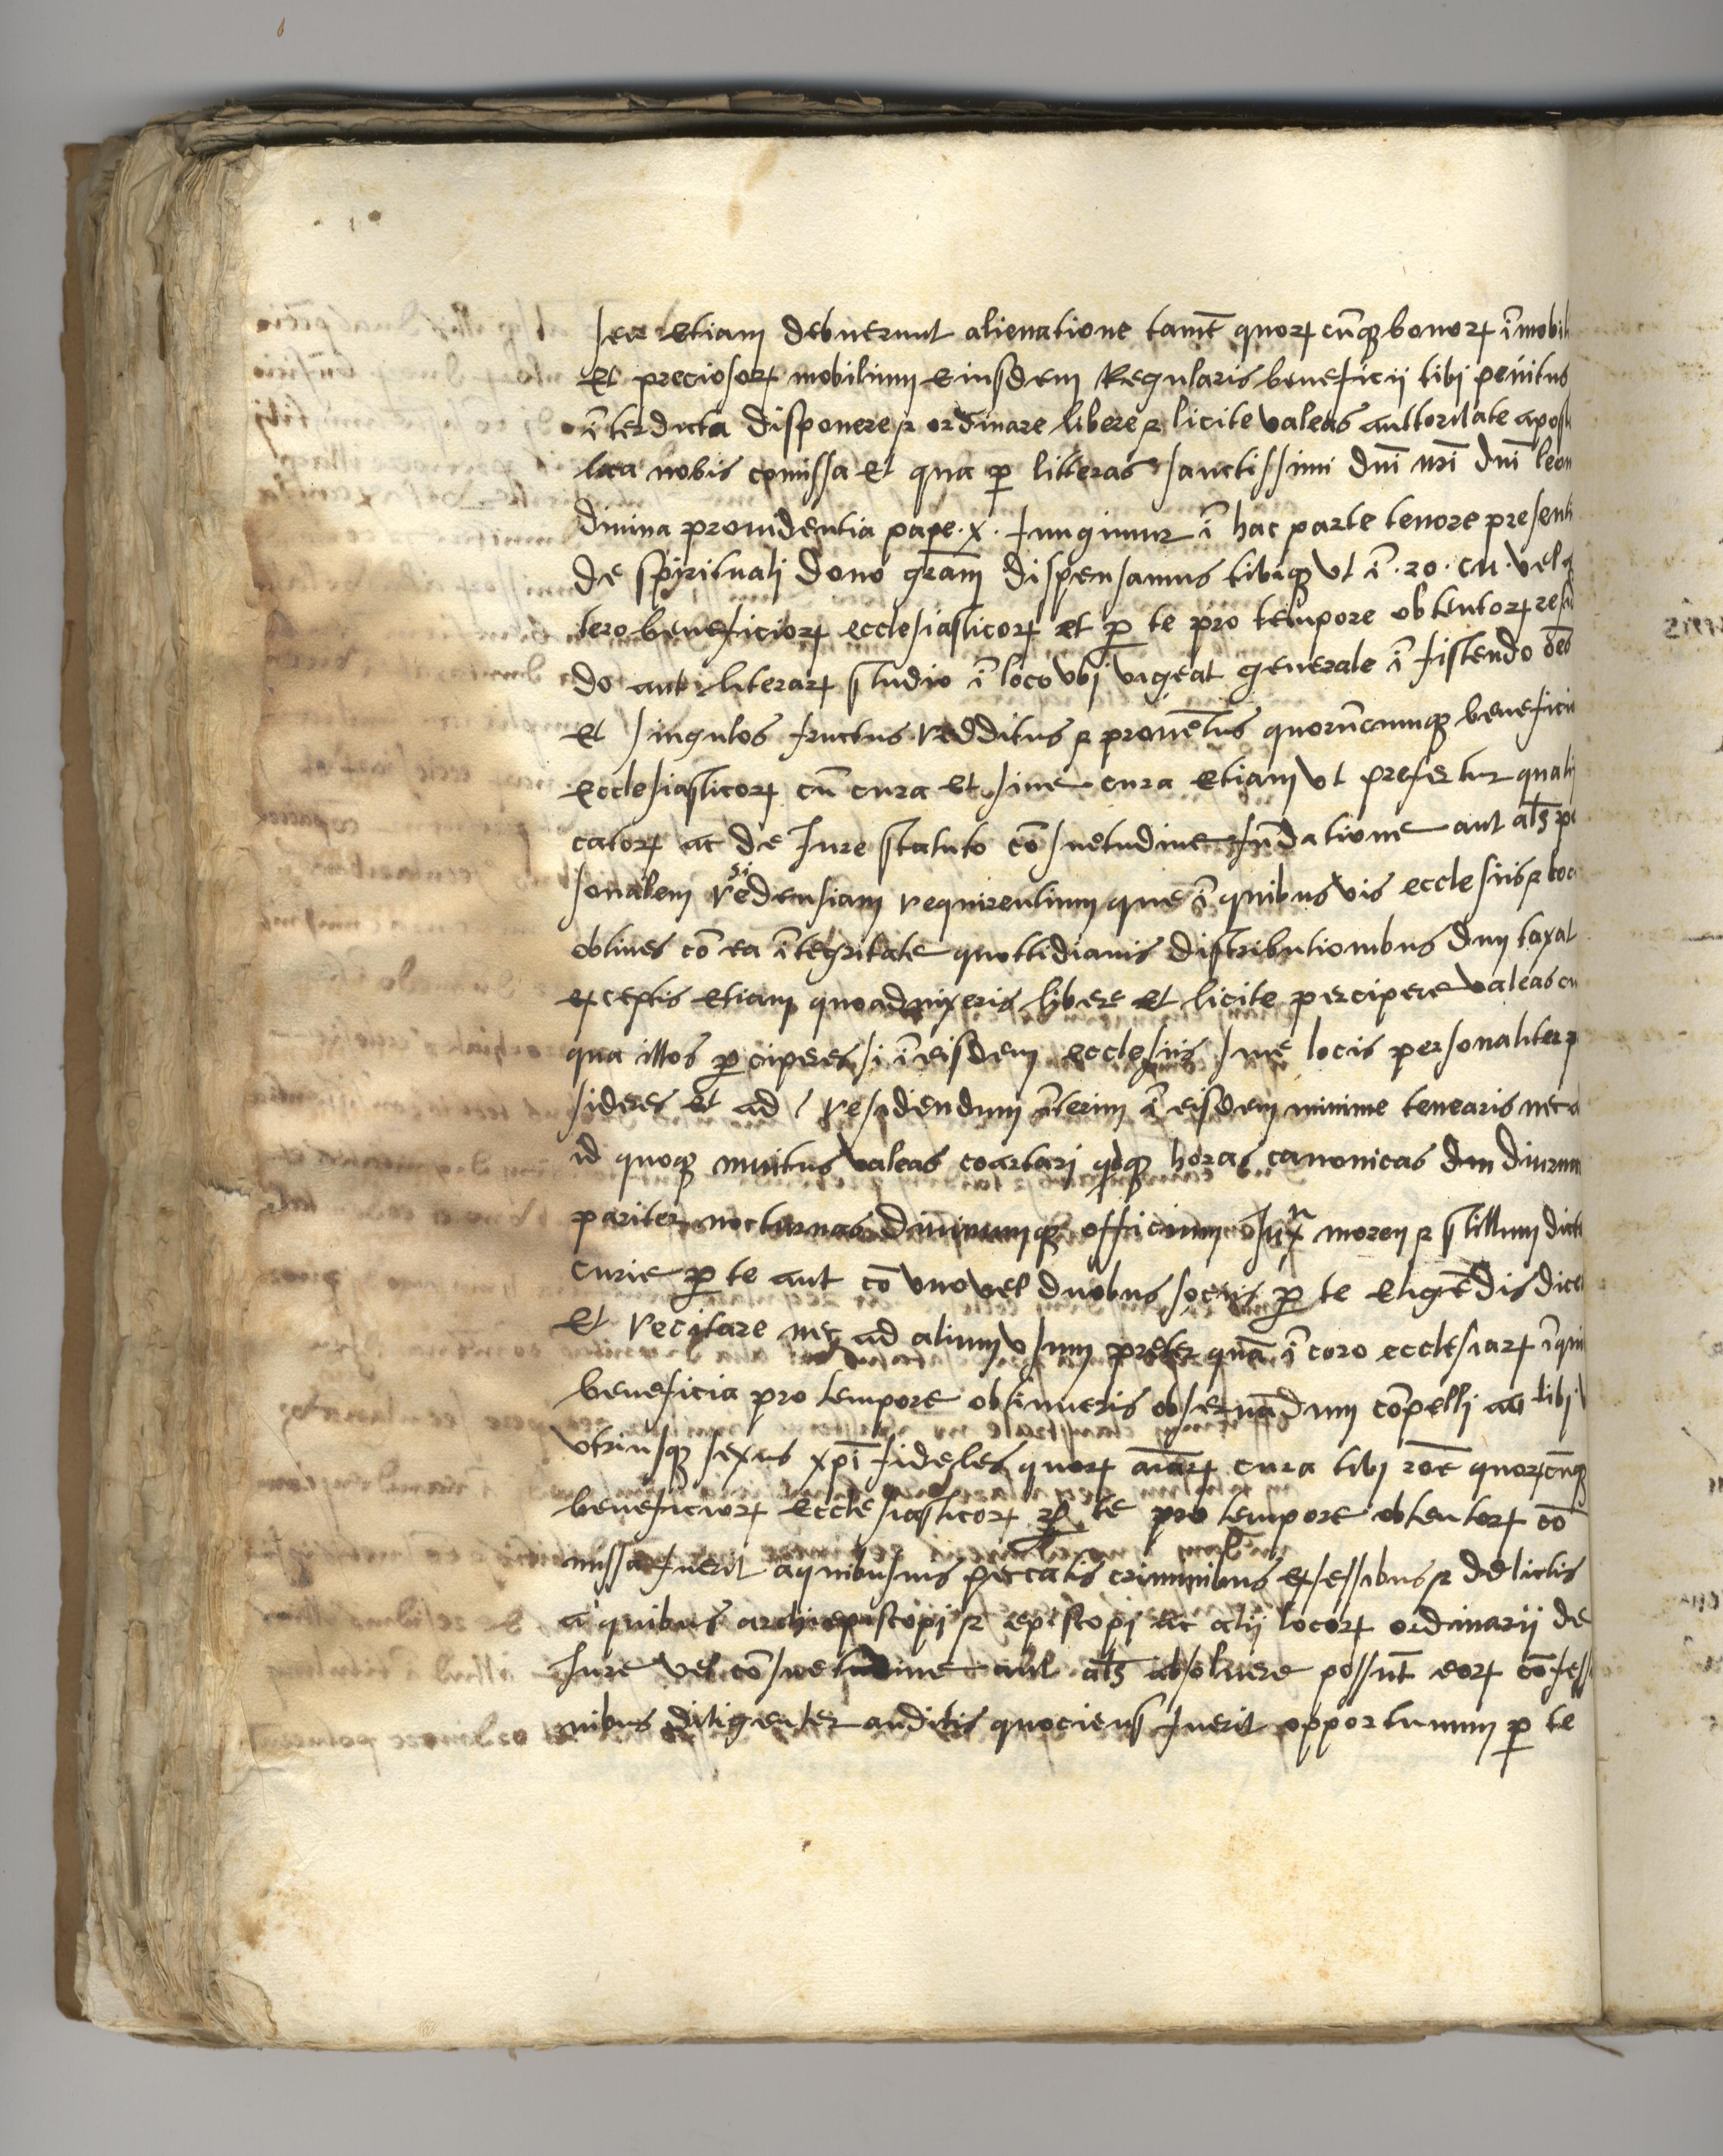 seu etiam debuerunt alienatione tamē quorꝝ cūqꝫ bonorꝝ īmobili
et preciosorꝝ mobilium eiusdem Regularis beneficij tibj penitus
īterdicta disponere ⁊ ordinare libere ⁊ licite valeas auttoritate apost
lica nobis comissa et qua ꝑ litteras sanctissimi dnī nrī dnī leon
diuina prouidentia pape · x · fungimur ī hac parte tenore presenti
de spiritualj dono grām dispensamus tibiqꝫ vt ī · ro · cu · vel
tero beneficiorꝝ ecclesiasticorꝝ et ꝑ te pro tempore obtentorꝝ resi
do aut literarꝝ studio ī loco vbj vigeat generale īsistendo
et singulos fructus redditus ⁊ prouētus quorūcumqꝫ beneficio
ecclesiasticorꝝ cū cura et sine cura etiam vt prefertur quali
catorꝝ ac de Iure statuto cōsuetudine fūdatione aut als̄ pe
sonalem resedensiam requirentium que ī quibus vis ecclesiis ⁊ loc
obtines cō ea ītegritate quottidianis distributionibus dum taxat
exceptis etiam quoad vixeris libere et licite percipere valeas cu
qua illos ꝑciperes si ī eisdem ecclesiis siue locis personaliter
sideres et ad residendum īterim ī eisdem minime tenearis nec a
id quoqꝫ inuitus valeas coartarj qdqꝫ horas canonicas diurna
pariter nocturnas diuinumqꝫ officium morem ⁊ stillum dicte
curie ꝑ te aut cō vno vel duobus sociis ꝑ te eligēdis dice
et recitare nec ad alium vsum preter quā ī coro ecclesiarꝝ ī qui
beneficia pro tempore obtinueris obseruādum cōpellj tibj
vtriusqꝫ sexus xpī fideles quorꝝ aīarꝝ cura tibj roē quorꝝcūqꝫ
beneficiorꝝ ecclesiasticorꝝ te pro tempore obtentorꝝ cō
missa fuerit aquibusuis peccatis criminibus exsessibus ⁊ delictis
a quibus archiepiscopj ⁊ episcopj ac alij locorꝝ ordinarij de
Iure vel cōsuetudine aut als̄ absoluere possūt eorꝝ cōfess
nibus diligenter auditis quociens fuerit opportunum ꝑ te